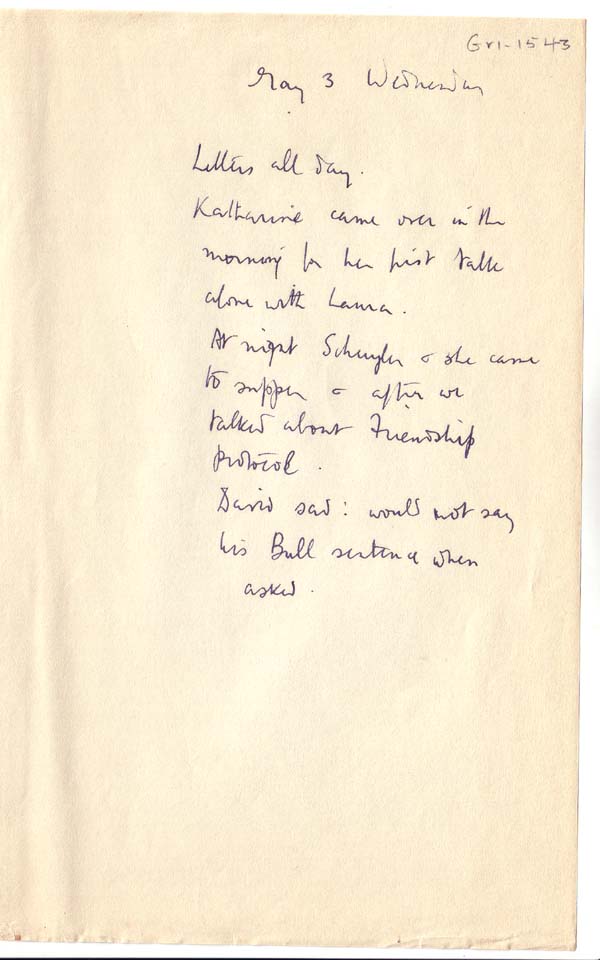 Gr1-1543
May 3 Wednesday
Letters all day.
Katharine came over in the
morning for her first talk
alone with Laura.
At night Schuyler & she came
to supper & after we
talked about Friendship
protocol.
David sad: would not say
his Bull sentence when
asked.